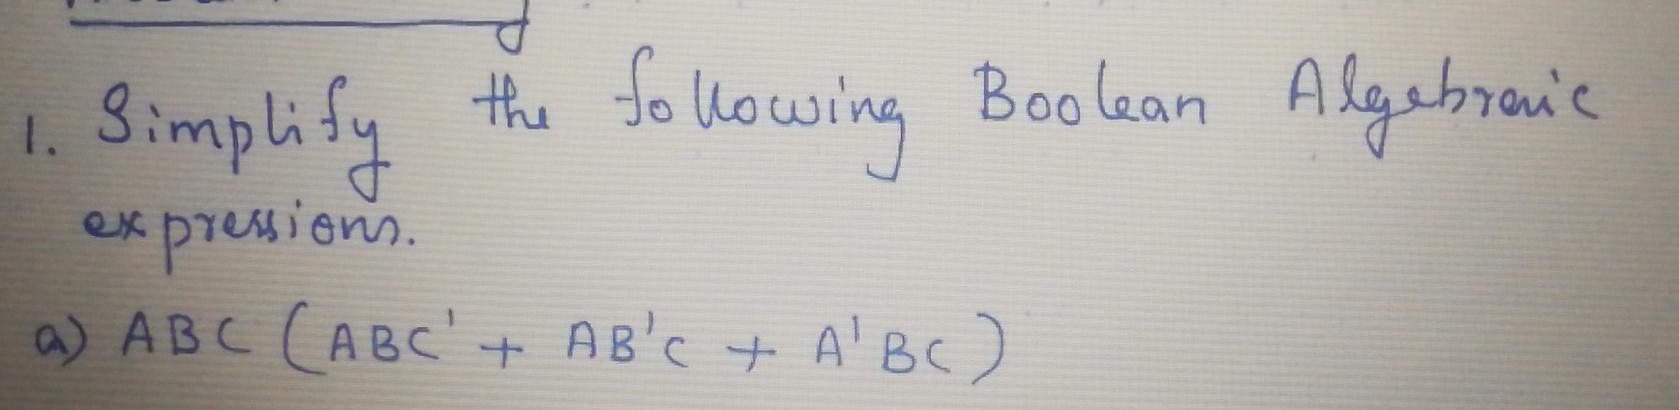 1. Simplify the following Boolean Algebraic
expressions.
a) ABC (ABC' + AB'C + A'BC)